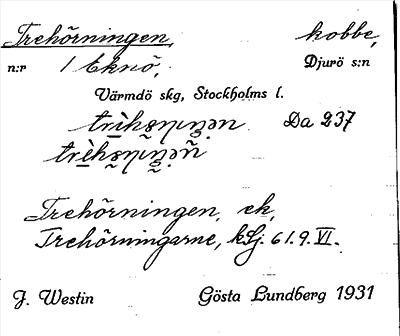 Trehörningen, kobbe,
n:r 1 Eknö, Djurö s:n
Värmdö skg, Stockholms l.
Da 237
Trehörningen, ek,
Trehörningarne, kSj. 61.9.VI.
J. Westin Gösta Lundberg 1931